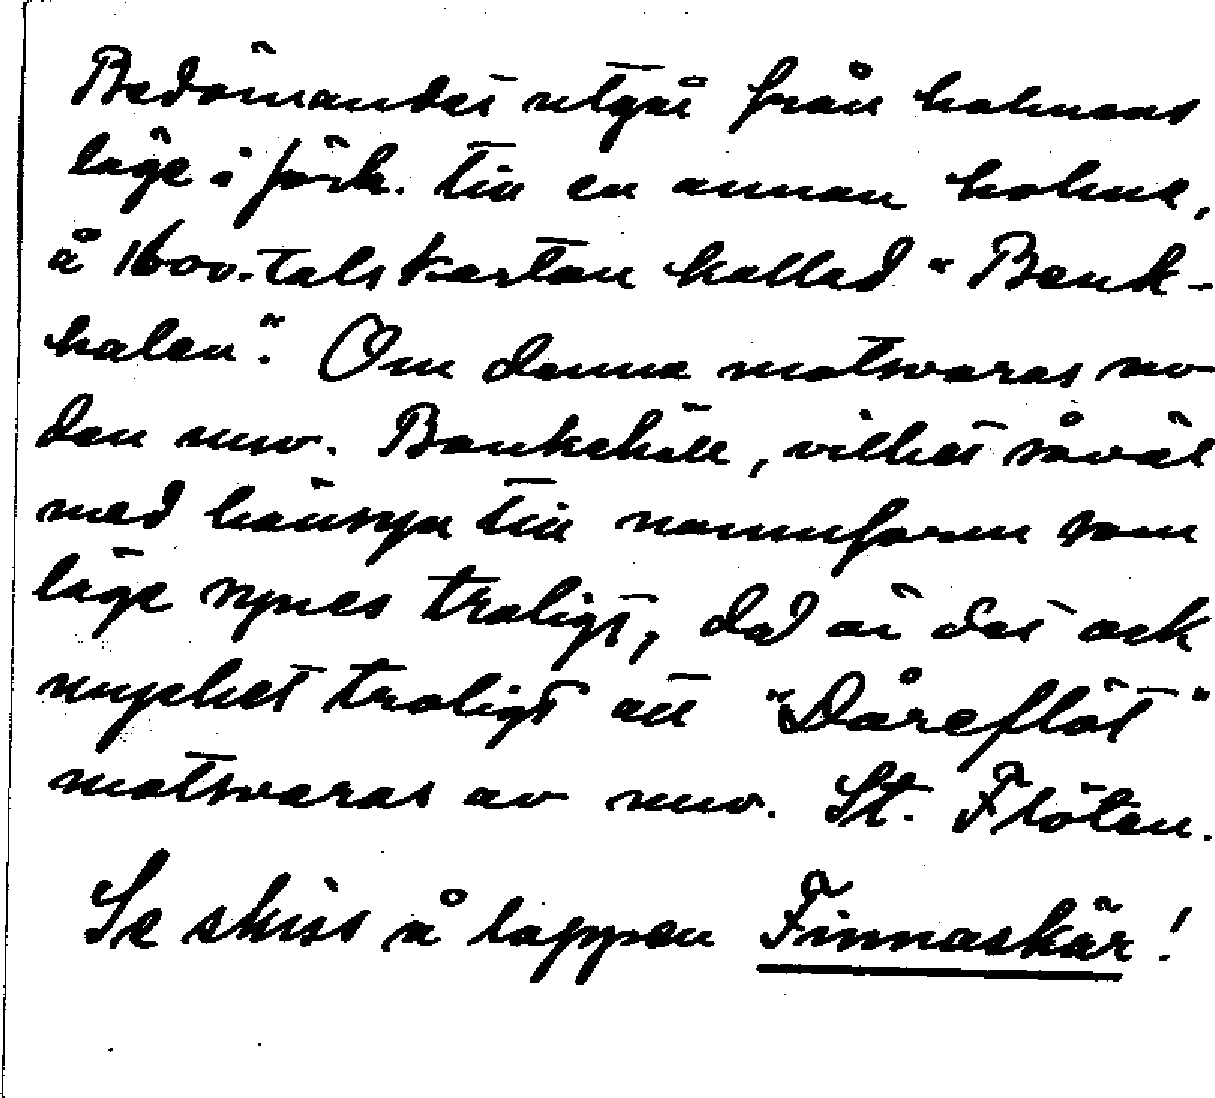 Bedömandet utgår från holmens
läge i förh. till en annan holme,
å 1600-talskartan kallad "Benk-
halen". Om denna motsvaras av
den nuv. Bonkehäll, vilket såväl
med hänsyn till namnform som
läge synes troligt, då är det ock
mycket troligt att "Dåreflöt"
motsvaras av nuv. St. Flöten.
Se skiss å lappen Finnaskär!